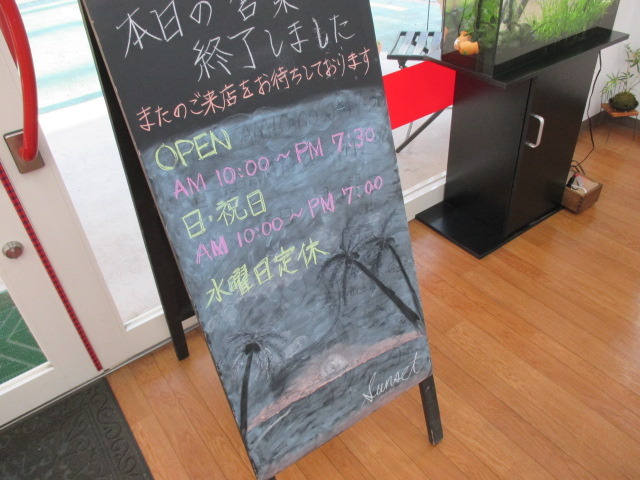 本日の営業
終了しました
またのご来店をお待ちしております
OPEN
AM 10:00~PM 7:30
日・祝日
AM 10:00~PM 7:00
水曜日定休
Sunset